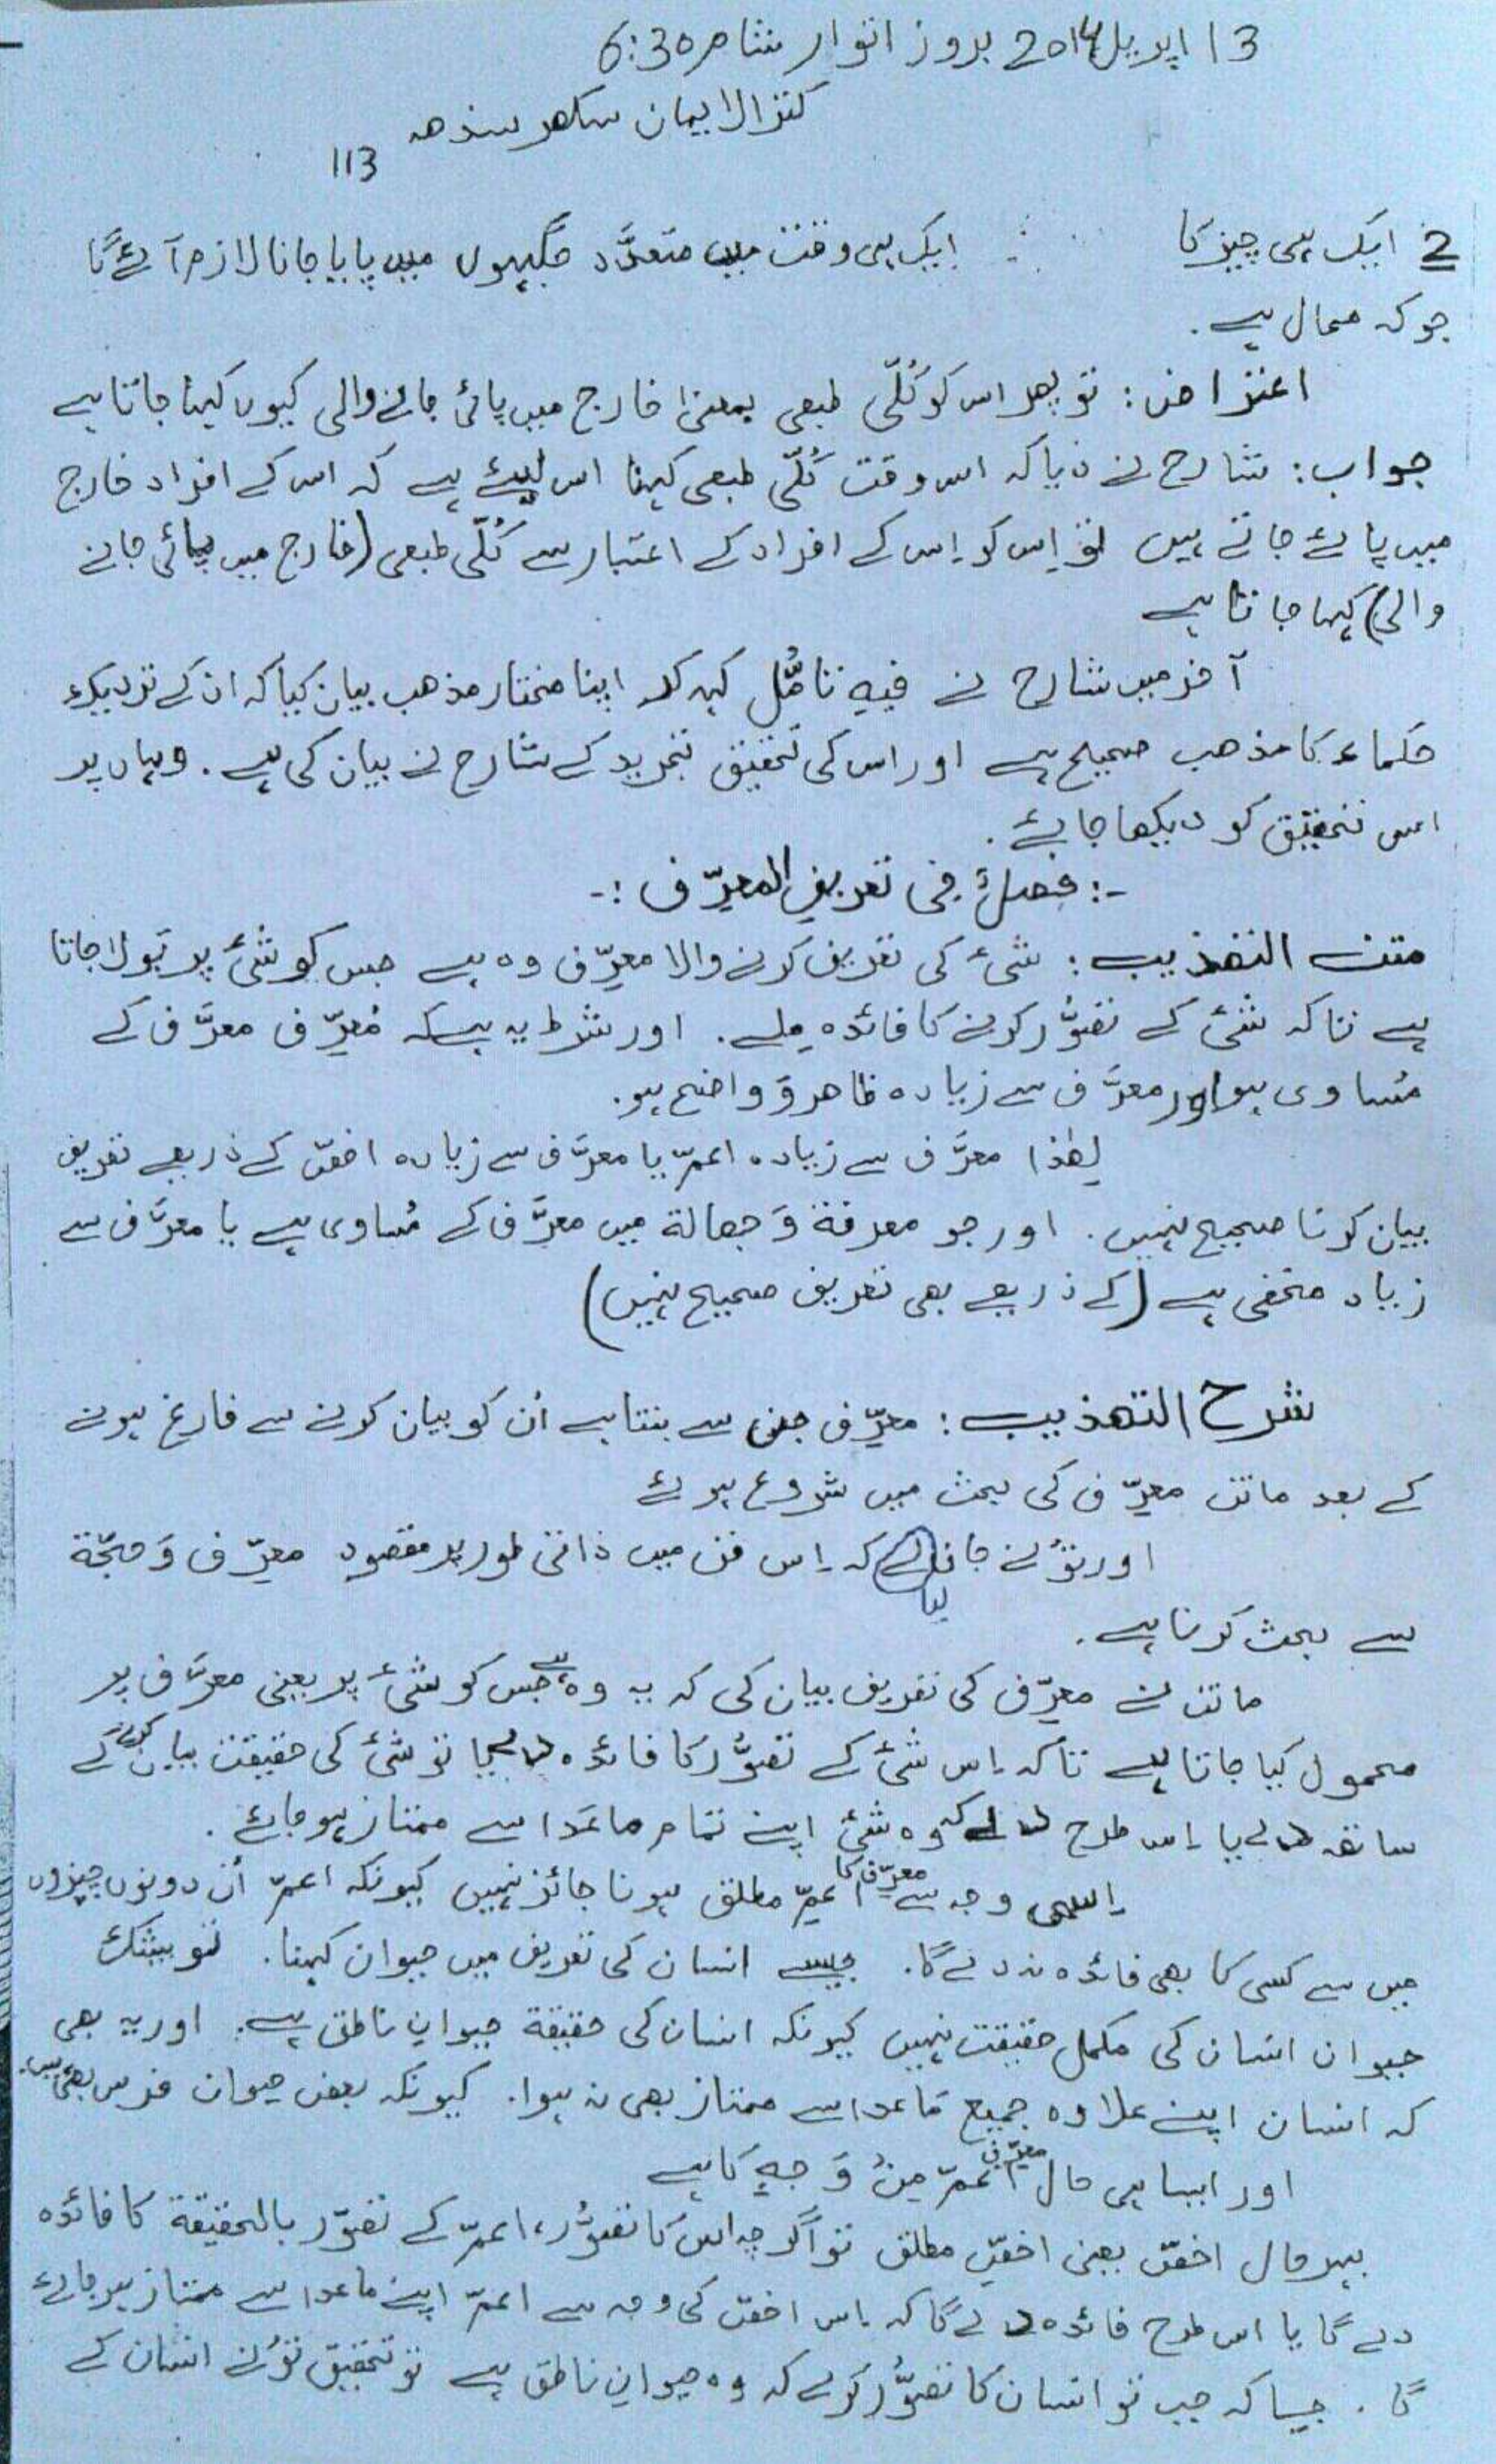 13 اپریل 2014 بروز اتوار شام 6:30
کنزالایمان سکھر سندھ
113
2 ایک ہی چیز کا ایک ہی وقت میں متعدَّد جگہوں میں پایا جانا لازم آئے گا
جو کہ محال ہے۔
اعتراض: تو پھر اس کو کُلّی طبعی بمعنیٰ خارج میں پائی جانے والی کیوں کہا جاتا ہے
جواب: شارح نے دیا کہ اس وقت کُلّی طبعی کہنا اس لیئے ہے کہ اس کے افراد خارج
میں پائے جاتے ہیں تو اِس کو اِس کے افراد کے اعتبار سے کُلّی طبعی (خارج میں پائی جانے
والی) کہا جاتا ہے
آخر میں شارح نے فیہِ تامُّل کہہ کر اپنا مختار مذھب بیان کیا کہ ان کے نزدیک
حکماء کا مذھب صحیح ہے اور اس کی تحقیق تجرید کے شارح نے بیان کی ہے۔ وہاں پر
اس تحقیق کو دیکھا جائے۔
-: فصلٌ فی تعریفِ المعرِّف :-
متن التھذیب: شیٔ کی تعریف کرنے والا معرِّف وہ ہے جس کو شیٔ پر بولا جاتا
ہے تاکہ شیٔ کے تصَوُّر کرنے کا فائدہ ملے۔ اور شرط یہ ہے کہ مُعرِّف معرَّف کے
مُساوی ہو اور معرَّف سے زیادہ ظاھر وَ واضح ہو۔
لھٰذا معرَّف سے زیادہ اعمّ یا معرَّف سے زیادہ اخصّ کے ذریعے تعریف
بیان کرنا صحیح نہیں۔ اور جو معرفۃ وَ جھالۃ میں معرَّف کے مُساوی ہے یا معرَّف سے
زیاد مخفی ہے (کے ذریعے بھی تعریف صحیح نہیں)
شرح التھذیب: معرِّف جن سے بنتا ہے اُن کو بیان کرنے سے فارغ ہونے
کے بعد ماتن معرِّف کی بحث میں شروع ہوئے
اور تؤنے جان لیا کہ اِس فن میں ذاتی طور پر مقصود معرِّف وَ حجّۃ
سے بحث کرنا ہے۔
ماتن نے معرِّف کی تعریف بیان کی کہ یہ وہ ہے جس کو شیٔ پر یعنی معرَّف پر
محمول کیا جاتا ہے تاکہ اِس شیٔ کے تصَوُّر کا فائدہ دے یا تو شیٔ کی حقیقت بیان کرنے کے
ساتھ دے یا اِس طرح دے کہ وہ شیٔ اپنے تمام ماعَدَا سے ممتاز ہوجائے۔
اِسی وجہ سے معرِّف کا اعمِّ مطلق ہونا جائز نہیں کیونکہ اعمّ اُن دونوں چیزوں
میں سے کسی کا بھی فائدہ نہ دے گا۔ جیسے انسان کی تعریف میں حیوان کہنا۔ تو بیشک
حیوان انسان کی مکمل حقیقت نہیں کیونکہ انسان کی حقیقۃ حیوانِ ناطق ہے۔ اور یہ بھی
کہ انسان اپنے علاوہ جمیع مَاعدا سے ممتاز بھی نہ ہوا۔ کیونکہ بعض حیوان فرس بھی ہیں۔
اور ایسا ہی حال معرِّفِ اعمّ مِنْ وَجہٍ کا ہے
بہرحال اخصّ یعنی اخصِّ مطلق تو اگرچہ اس کا تصَوُّر، اعمّ کے تصَوّر بالحقیقۃ کا فائدہ
دے گا یا اس طرح فائدہ دے گا کہ اِس اخصّ کی وجہ سے اعمّ اپنے ماعدا سے ممتاز ہوجائے
گا۔ جیسا کہ جب تو انسان کا تصَوُّر کرلے کہ وہ حیوانِ ناطق ہے تو تحقیق تؤنے انسان کے